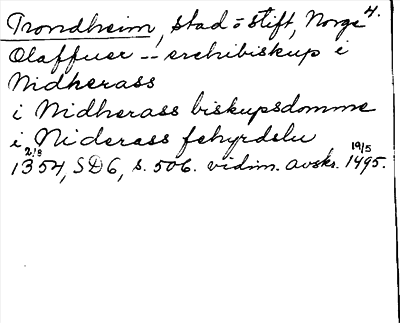 Trondheim, stad o stift, Norge 4.
Olaffuer -- erchibiskup i
Nidherass
i Nidherass biskupsdomme
i Niderass fehyrdslu
1354 2/8, SD6, s. 506. vidim. avskr. 1495 19/5.